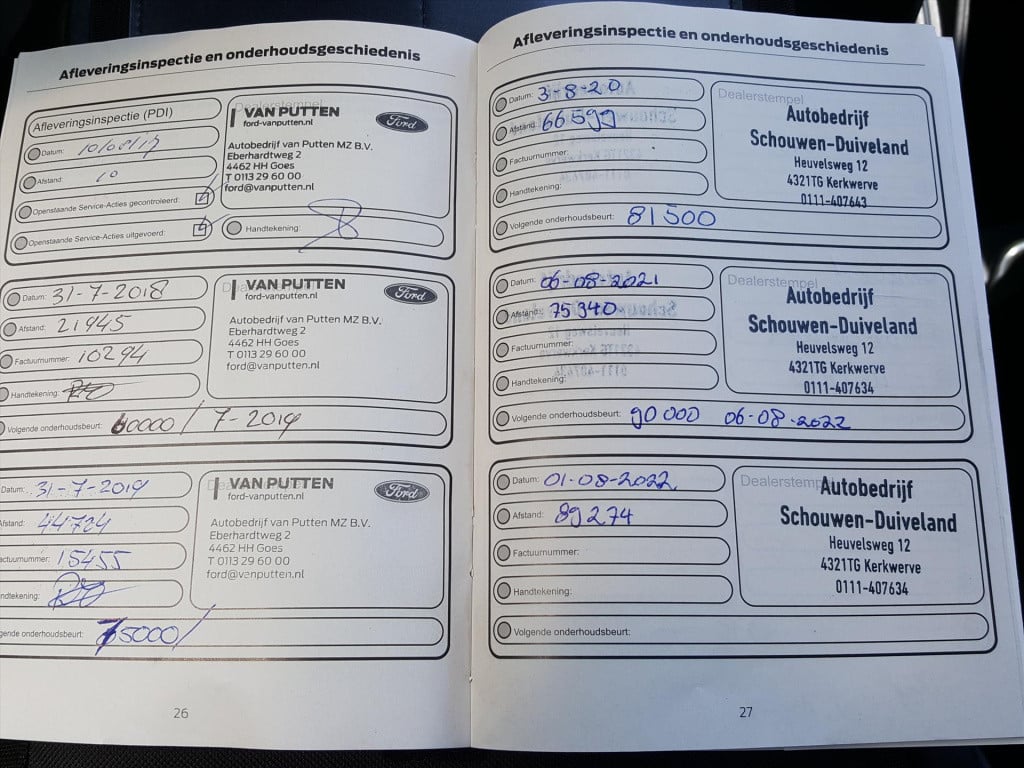 Afleveringsinspectie en onderhoudsgeschiedenis
Afleveringsinspectie (PDI)
Datum: 10/08/17
Afstand: 10
Openstaande Service-Acties gecontroleerd:
Openstaande Service-Acties uitgevoerd:
Handtekening:
Dealerstempel
VAN PUTTEN
ford-vanputten.nl
Ford
Autobedrijf van Putten MZ B.V.
Eberhardtweg 2
4462 HH Goes
T 0113 29 60 00
ford@vanputten.nl
Datum: 31-7-2018
Afstand: 21945
Factuurnummer: 10294
Handtekening:
Volgende onderhoudsbeurt: 60000/ 7-2019
VAN PUTTEN
ford-vanputten.nl
Ford
Autobedrijf van Putten MZ B.V.
Eberhardtweg 2
4462 HH Goes
T 0113 29 60 00
ford@vanputten.nl
Datum: 31-7-2019
Afstand: 44724
actuurnummer: 15455
ndtekening:
gende onderhoudsbeurt: 75000/
VAN PUTTEN
ford-vanputten.nl
Ford
Autobedrijf van Putten MZ B.V.
Eberhardtweg 2
4462 HH Goes
T 0113 29 60 00
ford@vanputten.nl
26
Afleveringsinspectie en onderhoudsgeschiedenis
Datum: 3-8-20
Afstand: 66599
Factuurnummer:
Handtekening:
Volgende onderhoudsbeurt: 81500
Dealerstempel
Autobedrijf
Schouwen-Duiveland
Heuvelsweg 12
4321TG Kerkwerve
0111-407643
Datum: 06-08-2021
Afstand: 75340
Factuurnummer:
Handtekening:
Volgende onderhoudsbeurt: 90000 06-08-2022
Dealerstempel
Autobedrijf
Schouwen-Duiveland
Heuvelsweg 12
4321TG Kerkwerve
0111-407634
Datum: 01-08-2022
Afstand: 89274
Factuurnummer:
Handtekening:
Volgende onderhoudsbeurt:
Dealerstempel
Autobedrijf
Schouwen-Duiveland
Heuvelsweg 12
4321TG Kerkwerve
0111-407634
27